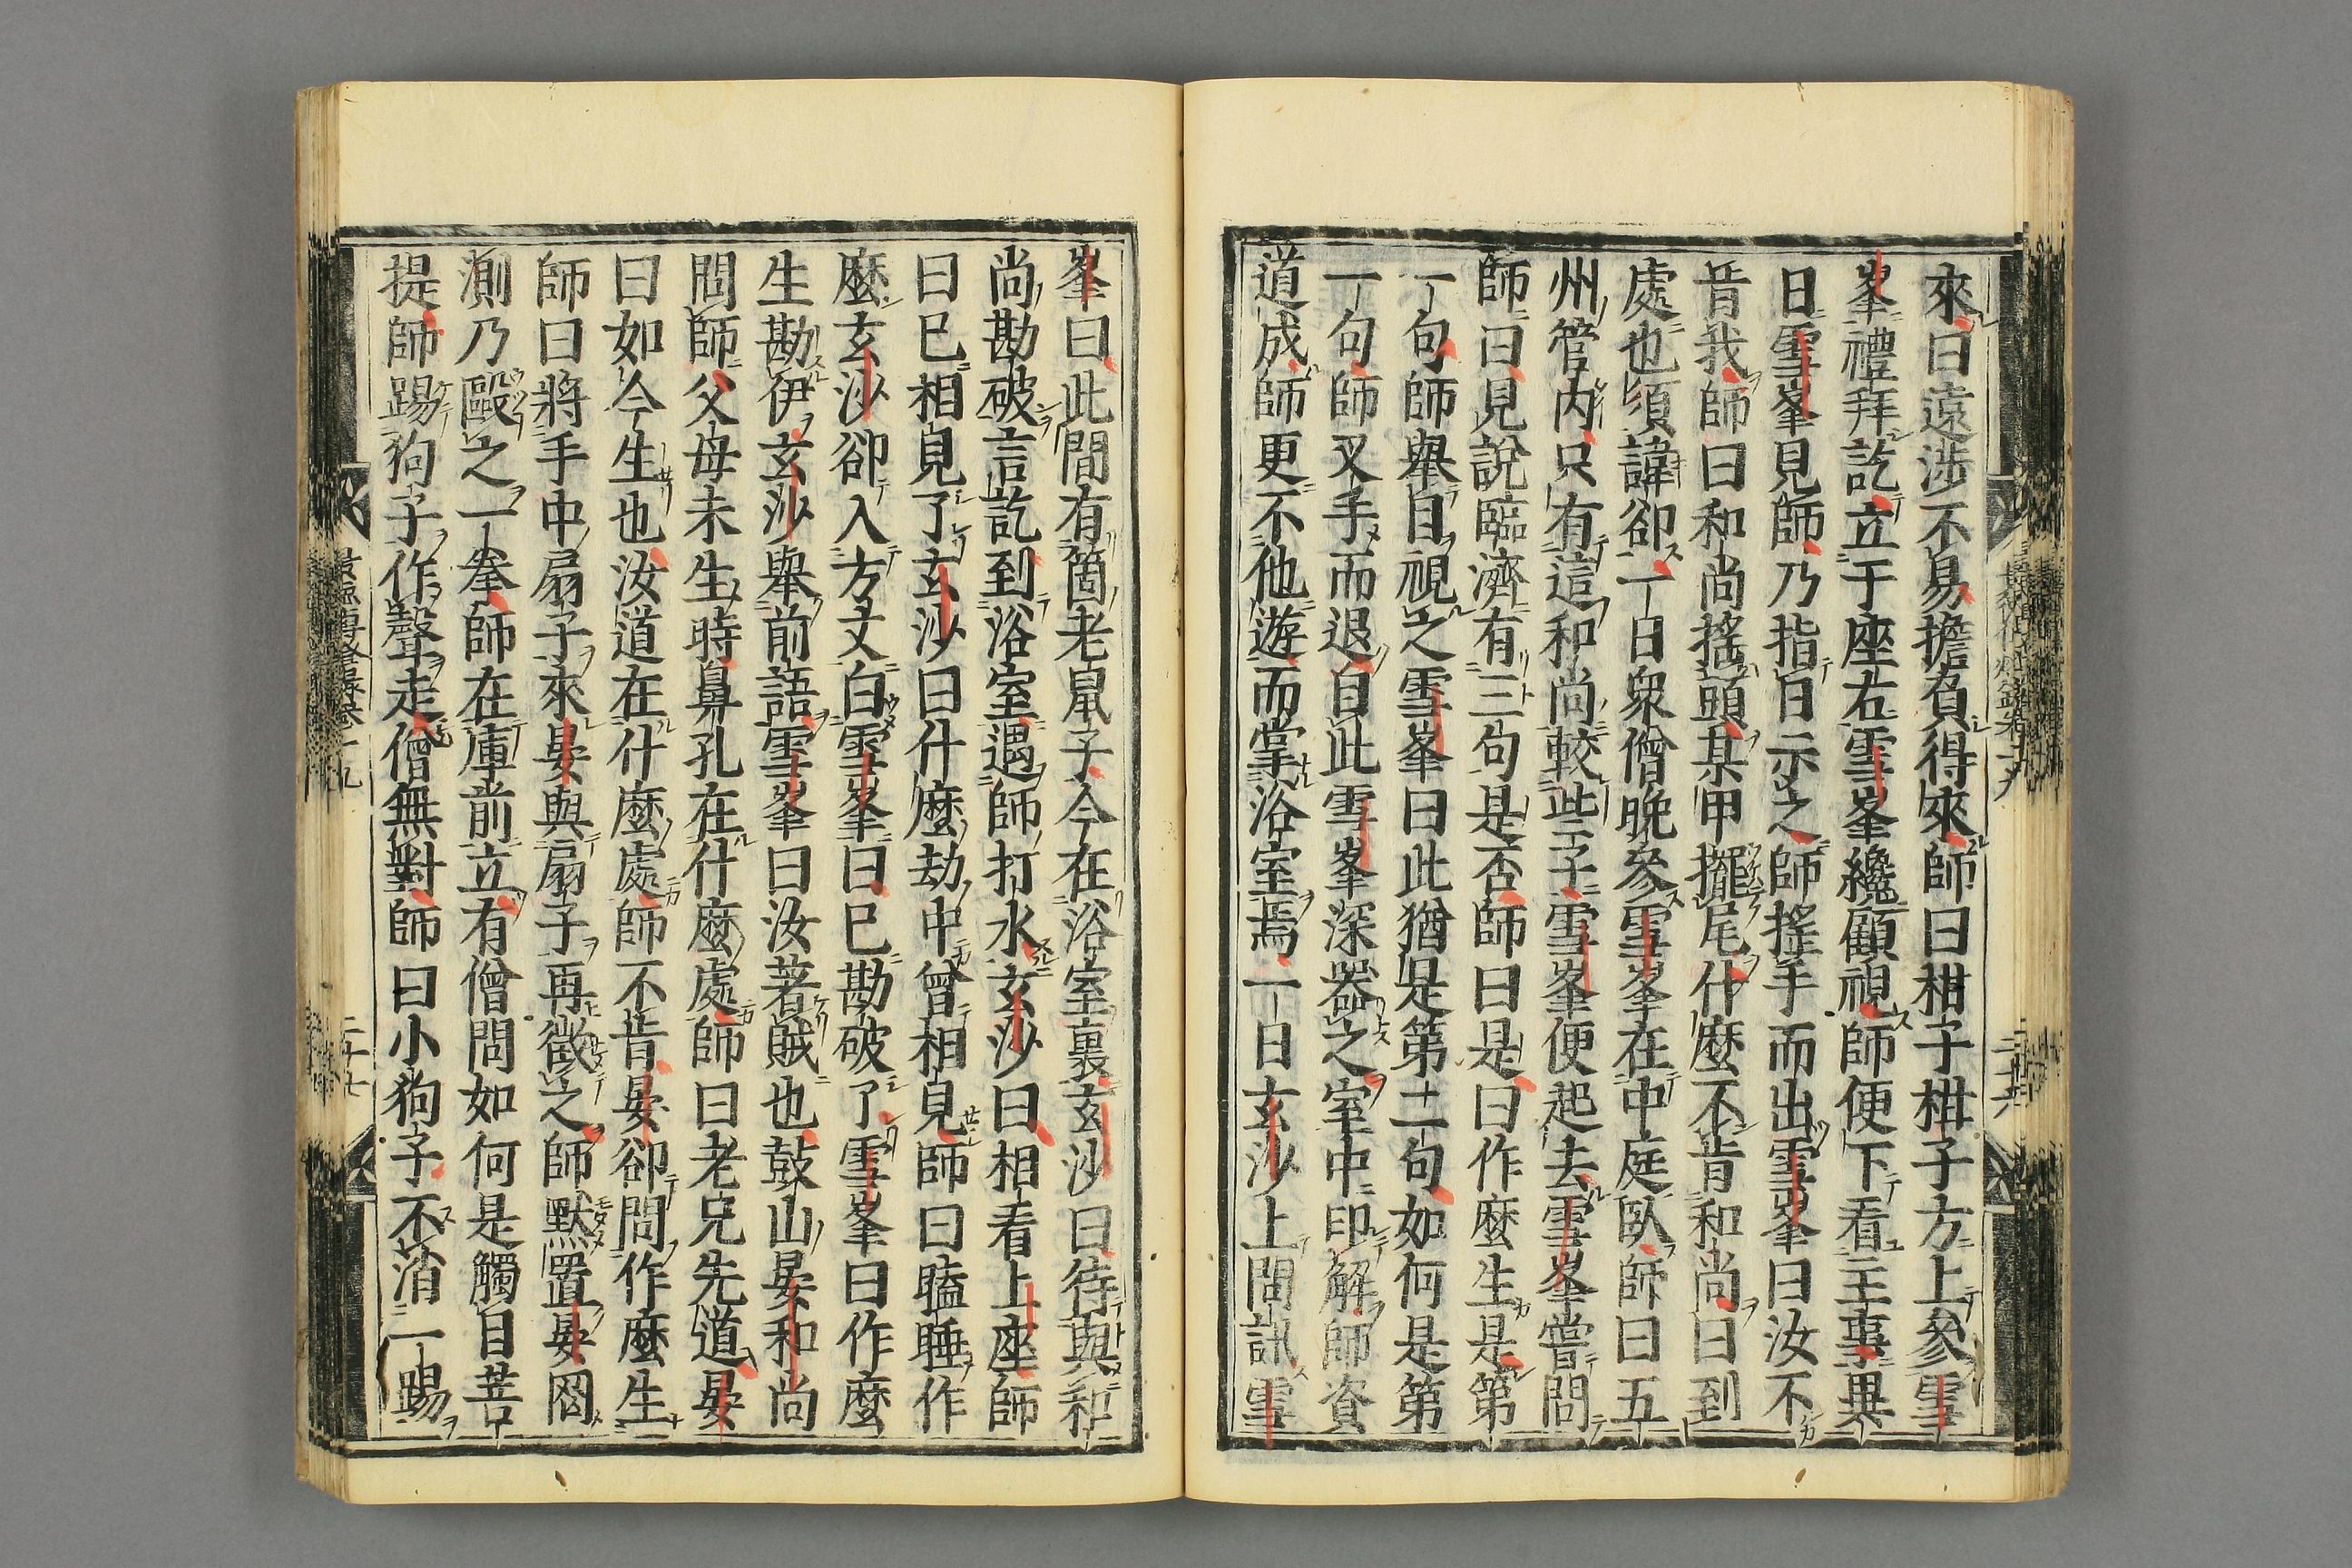 來曰遠涉不易擔負得來師曰柑子柑子方上參雪
峯禮拜訖立于座右雪峯纔顧視師便下看主事異
日雪峯見師乃指日示之師搖手而出雪峯曰汝不
肯我師曰和尚搖頭某甲擺尾什麼不肯和尚曰到
處也須諱卻一日衆僧晚參雪峯在中庭臥師曰五
州管內只有這和尚較些子雪峯便起去雪峯嘗問
師曰見說臨濟有三句是否師曰是曰作麼生是第
一句師舉目視之雪峯曰此猶是第二句如何是第
一句師叉手而退自此雪峯深器之室中印解師資
道成師更不他遊而掌浴室焉一日玄沙上問訊雪
峯曰此間有箇老鼠子今在浴室裏玄沙曰待與和
尚勘破言訖到浴室遇師打水玄沙曰相看上座師
曰已相見了玄沙曰什麼劫中曾相見師曰瞌睡作
麼玄沙卻入方丈白雪峯曰已勘破了雪峯曰作麼
生勘伊玄沙舉前語雪峯曰汝著賊也鼓山晏和尚
問師父母未生時鼻孔在什麼處師曰老兄先道晏
曰如今生也汝道在什麼處師不肯晏卻問作麼生
師曰將手中扇子來晏與扇子再徵之師默置晏罔
測乃毆之一拳師在庫前立有僧問如何是觸目菩
提師踢狗子作聲走僧無對師曰小狗子不消一踢